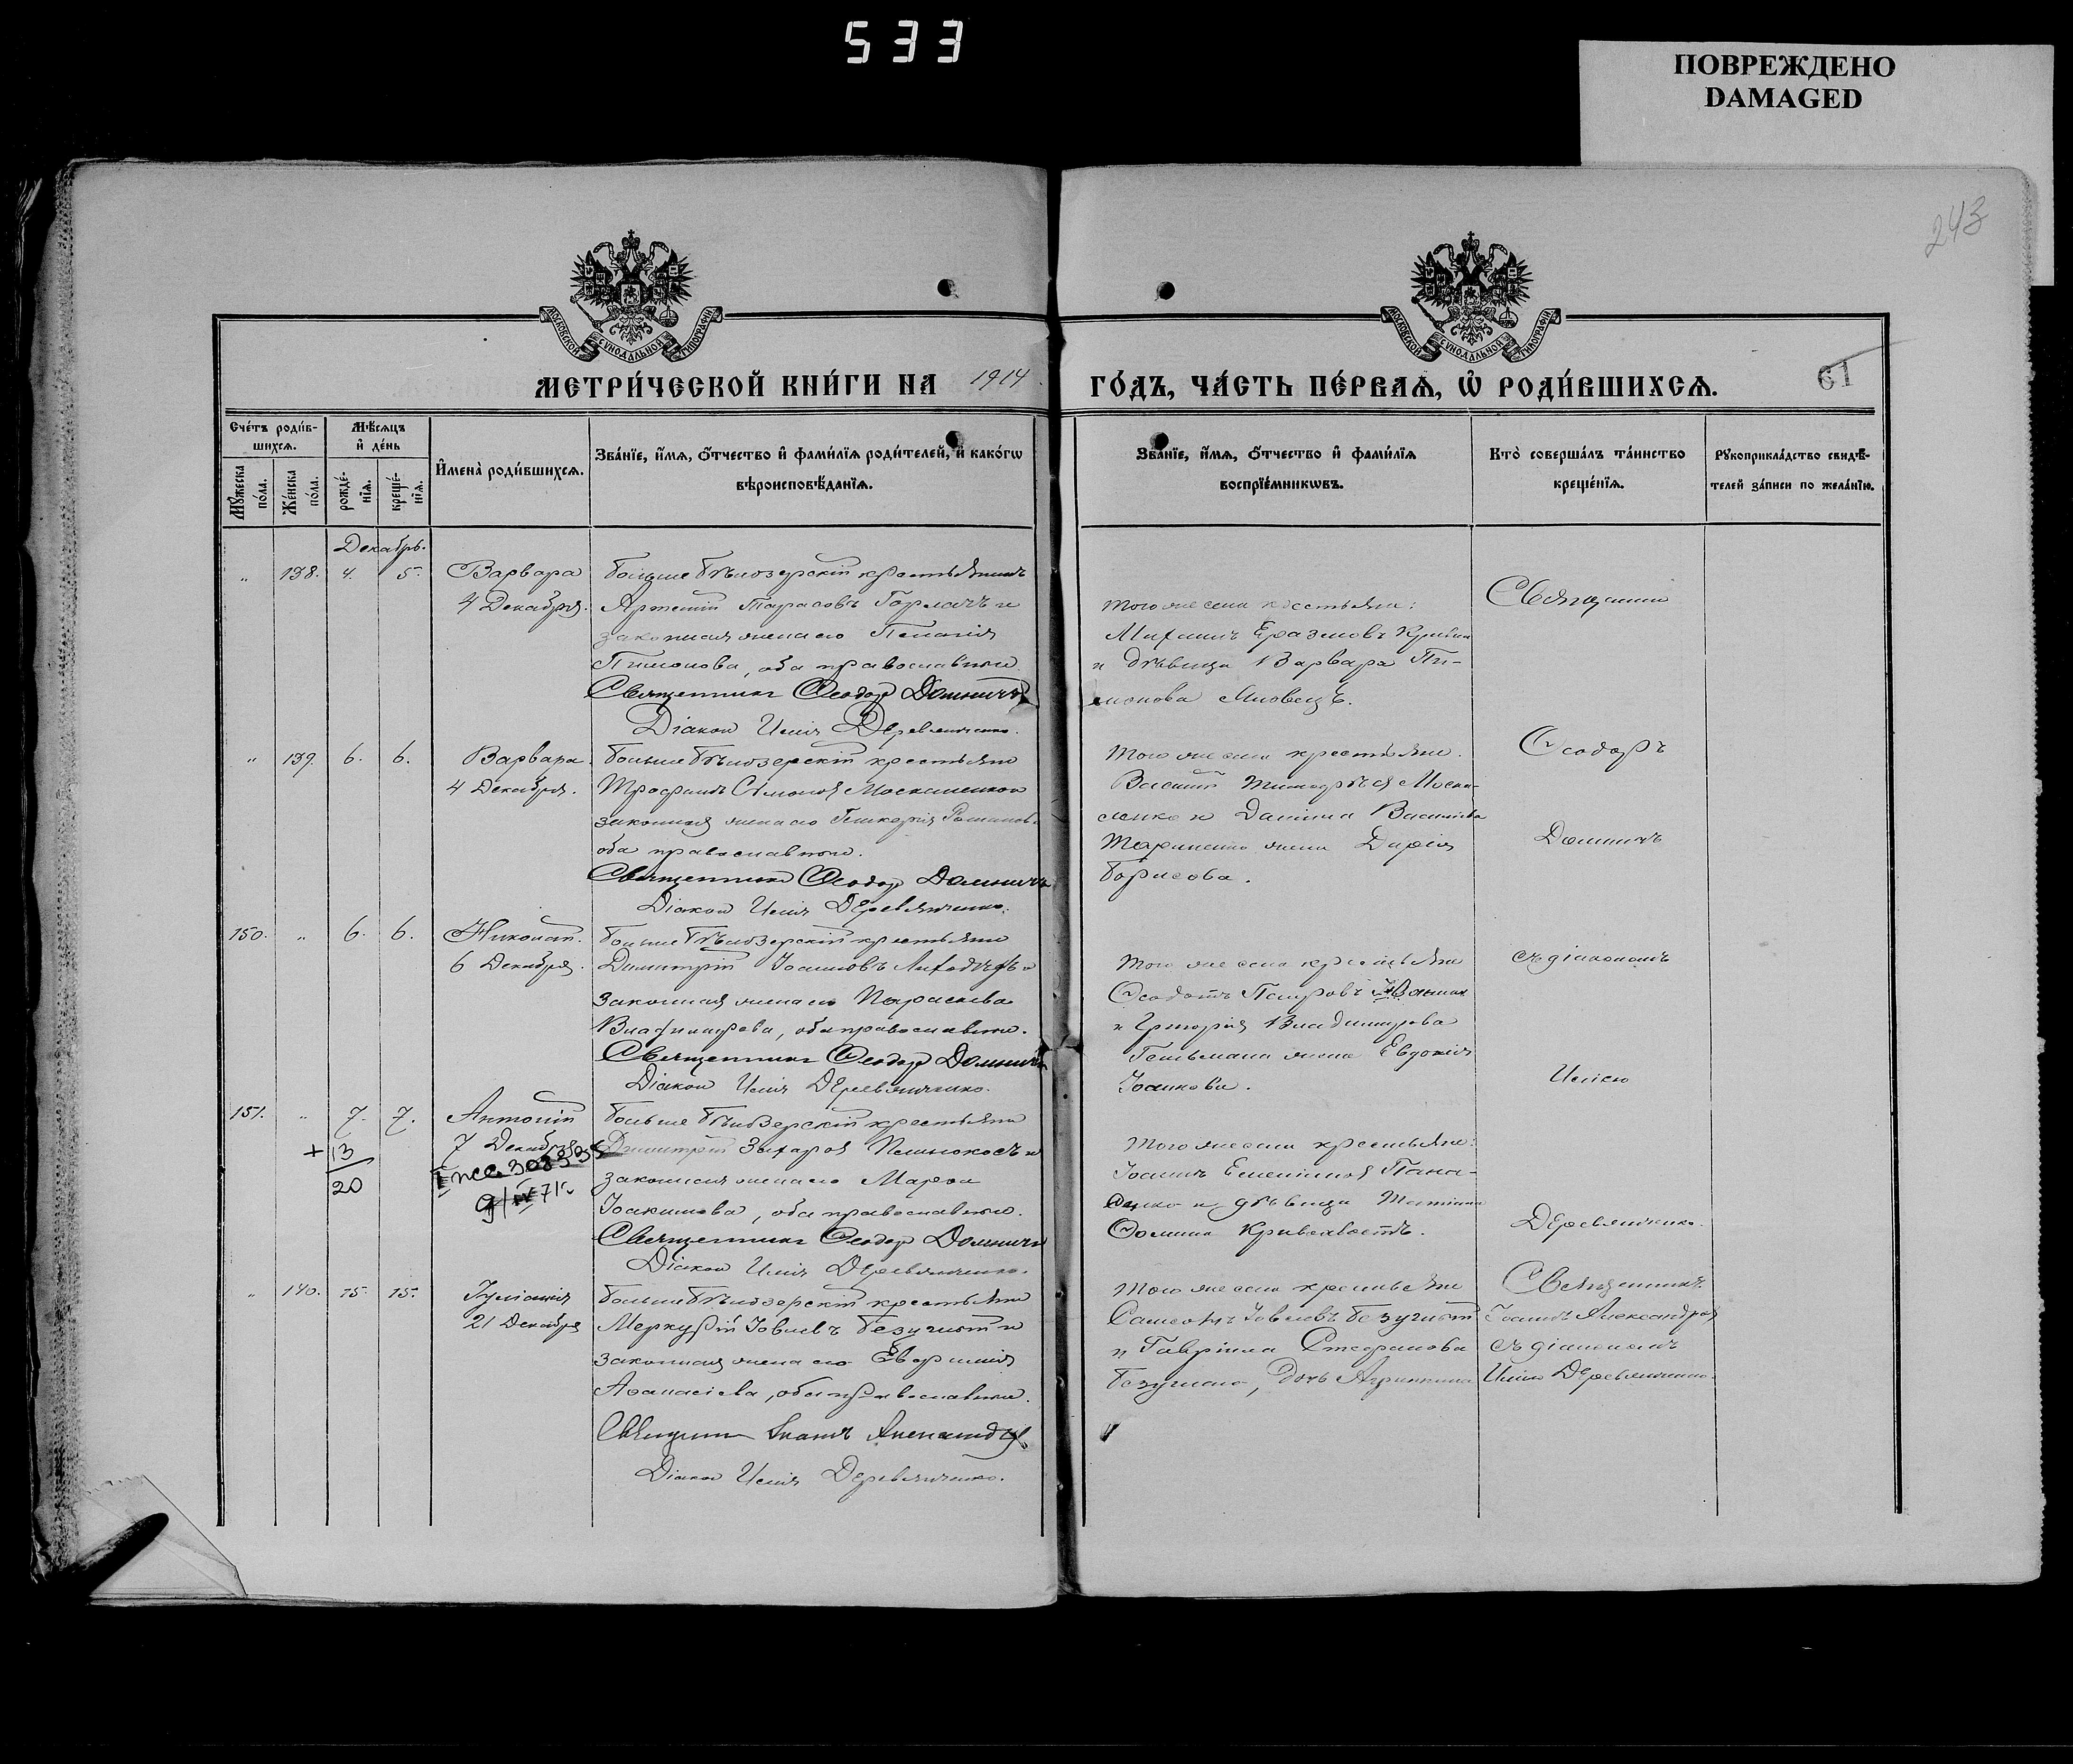 533
ПОВРЕЖДЕНО
DAMAGED
243
МОСКОВСКОЙ СѴНОДАЛЬНОЙ ТИПОГРАФІИ
МОСКОВСКОЙ СѴНОДАЛЬНОЙ ТИПОГРАФІИ
МЕТРИ́ЧЕСКОЙ КНИ́ГИ НА 1914
ГО́ДЪ, ЧА́СТЬ ПЕ́РВАѦ, Ѡ҆ РОДИ́ВШИХСѦ.
61
Сче́тъ роди́в-
шихсѧ.
Мꙋ́жеска по́ла.
Же́нска по́ла.
Мѣ́сѧцъ
и҆ де́нь
рожде́-
нїѧ.
креще́-
нїѧ.
И҆мена̀ роди́вшихсѧ.
Зва́нїе, и҆́мѧ, ѻ҆́тчество и҆ фами́лїѧ роди́телей, и҆ како́гѡ
вѣроисповѣ́данїѧ.
Зва́нїе, и҆́мѧ, ѻ҆́тчество и҆ фами́лїѧ
воспрїе́мникѡвъ.
Кто̀ соверша́лъ та́инство
креще́нїѧ.
Рꙋкоприкла́дство свидѣ́-
телей за́писи по жела́нїю.
Декабрь.
" 138. 4. 5. Варвара
4 Декабря.
Больше Бѣлозерскій крестьянинъ
Артемій Тарасовъ Горлачъ и
законная жена его Пелагія
Пимонова, оба православные
Священникъ Ѳеодоръ Домничъ
Діаконъ Илія Деревянченко.
того же села крестьяне:
Михаилъ Еразмовъ
и дѣвица Варвара Пи-
монова Яновецъ.
Священникъ
" 139. 6. 6. Варвара
4 Декабря.
Больше Бѣлозерскій крестьянинъ
Трофимъ Симоновъ Москаленко и
законная жена его Гликерія Романова
оба православные.
Священникъ Ѳеодоръ Домничъ
Діаконъ Илія Деревянченко.
того же села крестьяне
Василій Тимофѣевъ Моска-
ленко и Даніила Васильева
жена Дарія
Борисова.
Ѳеодоръ
Домничъ
150. " 6. 6. Николай.
6 Декабря.
Больше Бѣлозерскій крестьянинъ
Димитрій Іоанновъ и
законная жена его Параскева
оба православные.
Священникъ Ѳеодоръ Домничъ
Діаконъ Илія Деревянченко.
того же села крестьяне
Ѳеодотъ Петровъ
и Григорія Владимірова
Гетьмана жена Евдокія
Іоаннова.
съ діакономъ
Иліею
151. " 7. 7. Антоній
7 Декабря
+ 13
20
Димитрій Захаровъ и
Больше Бѣлозерскій крестьянинъ
законная жена его Марѳа
Іоакимова, оба православные.
Священникъ Ѳеодоръ Домничъ
Діаконъ Илія Деревянченко.
того же села крестьяне:
Іоаннъ
и дѣвица Татіана
Ѳомина Кривохвостъ.
Деревянченко.
" 140. 15. 15. Іуліанія
21 Декабря
Больше Бѣлозерскій крестьянинъ
Меркурій Іовлевъ Безуглый и
законная жена его Евфимія
Аѳанасіева, оба православные.
Священникъ Іоаннъ Александровъ
Діаконъ Илія Деревянченко.
того же села крестьяне
Самсонъ Іовлевъ Безуглый
и Гавріила Стефанова
Безуглаго, дочь Агриппина
Священникъ
Іоаннъ Александровъ
съ діакономъ
Иліею Деревянченко.